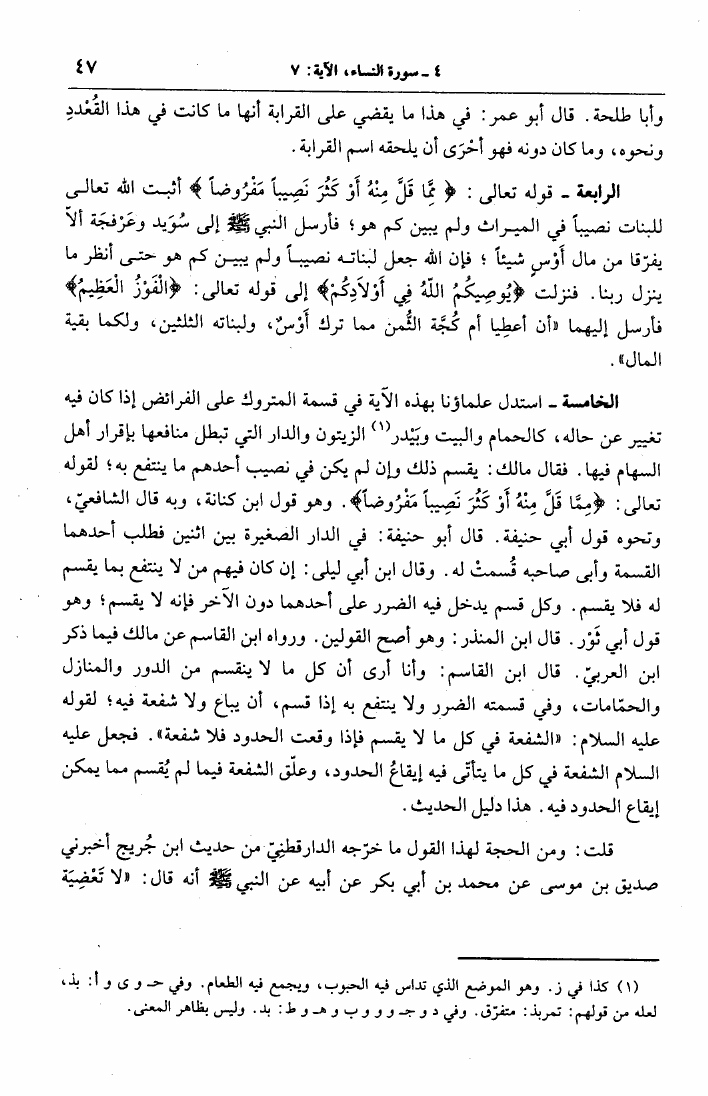 ٤ ـ سورة النساء، الآية: ٧
٤٧
وأبا طلحة. قال أبو عمر: في هذا ما يقضي على القرابة أنها ما كانت في هذا القُعْددِ
ونحوه، وما كان دونه فهو أحْرَى أن يلحقه اسم القرابة.
الرابعة ـ قوله تعالى: ﴿مِّمَّا قَلَّ مِنْهُ أَوْ كَثُرَ نَصِيباً مَفْرُوضاً﴾ أثبت الله تعالى
للبنات نصيباً في الميراث ولم يبين كم هو؛ فأرسل النبيّ ﷺ إلى سُوَيد وعَرْفجَة ألاّ
يفرّقا من مال أوْسٍ شيئاً؛ فإن الله جعل لبناته نصيباً ولم يبين كم هو حتى أنظر ما
ينزل ربنا. فنزلت ﴿يُوصِيكُمُ اللّهُ فِي أَوْلاَدِكُمْ﴾ إلى قوله تعالى: ﴿الْفَوْزُ الْعَظِيمُ﴾
فأرسل إليهما «أن أعطِيا أم كُجَّة الثُّمن مما ترك أوْسٌ، ولبناته الثلثين، ولكما بقية
المال».
الخامسة ـ استدل علماؤنا بهذه الآية في قسمة المتروك على الفرائض إذا كان فيه
تغيير عن حاله، كالحمام والبيت وبَيْدر(١) الزيتون والدار التي تبطل منافعها بإقرار أهل
السهام فيها. فقال مالك: يقسم ذلك وإن لم يكن في نصيب أحدهم ما ينتفع به؛ لقوله
تعالى: ﴿مِمَّا قَلَّ مِنْهُ أَوْ كَثُرَ نَصِيباً مَفْرُوضاً﴾. وهو قول ابن كنانة، وبه قال الشافعيّ،
ونحوه قول أبي حنيفة. قال أبو حنيفة: في الدار الصغيرة بين اثنين فطلب أحدهما
القسمة وأبى صاحبه قُسمتْ له. وقال ابن أبي ليلى: إن كان فيهم من لا ينتفع بما يقسم
له فلا يقسم. وكل قسم يدخل فيه الضرر على أحدهما دون الآخر فإنه لا يقسم؛ وهو
قول أبي ثَوْر. قال ابن المنذر: وهو أصح القولين. ورواه ابن القاسم عن مالك فيما ذكر
ابن العربيّ. قال ابن القاسم: وأنا أرى أن كل ما لا ينقسم من الدور والمنازل
والحمّامات، وفي قسمته الضرر ولا ينتفع به إذا قسم، أن يباع ولا شفعة فيه؛ لقوله
عليه السلام: «الشفعة في كل ما لا يقسم فإذا وقعت الحدود فلا شفعة». فجعل عليه
السلام الشفعة في كل ما يتأتّى فيه إيقاعُ الحدود، وعلّق الشفعة فيما لم يُقسم مما يمكن
إيقاع الحدود فيه. هذا دليل الحديث.
قلت: ومن الحجة لهذا القول ما خرّجه الدارقطنِيّ من حديث ابن جُريج أخبرني
صديق بن موسى عن محمد بن أبي بكر عن أبيه عن النبي ﷺ أنه قال: «لا تَعْضِيَة
(١) كذا في ز. وهو الموضع الذي تداس فيه الحبوب، ويجمع فيه الطعام. وفي حـ و ى و أ: بذ،
لعله من قولهم: تمربذ: متفرّق. وفي د و جـ و و و ب و هـ و ط: بد. وليس بظاهر المعنى.